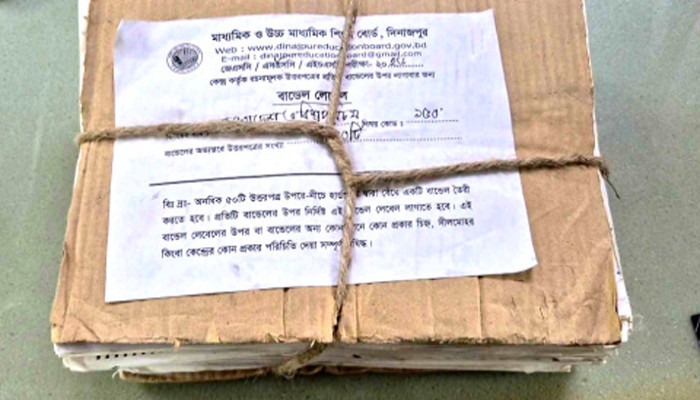 মাধ্যমিক ও উচ্চ মাধ্যমিক শিক্ষা বোর্ড, দিনাজপুর
Web : www.dinajpureducationboard.gov.bd
E-mail : dinajpureducationboard@gmail.com
জেএসসি / এসএসসি / এইচএসসি পরীক্ষা- ২০
কেন্দ্র কর্তৃক রচনামূলক উত্তরপত্রের প্রতিটি বান্ডেলের উপর লাগাবার জন্য
বান্ডেল লেবেল
বিষয় কোড : ১৫০
বান্ডেলের অভ্যন্তরে উত্তরপত্রের সংখ্যা টি
বিঃ দ্রঃ- অনধিক ৫০টি উত্তরপত্র উপরে-নীচে হার্ড দ্বারা বেঁধে একটি বান্ডেল তৈরী
করতে হবে। প্রতিটি বান্ডেলের উপর নির্দিষ্ট এই বান্ডেল লেবেল লাগাতে হবে। এই
বান্ডেল লেবেলের উপর বা বান্ডেলের অন্য কোন কোন প্রকার চিহ্ন, সীলমোহর
কিংবা কেন্দ্রের কোন প্রকার পরিচিতি দেয়া সম্পূর্ণ নিষিদ্ধ।